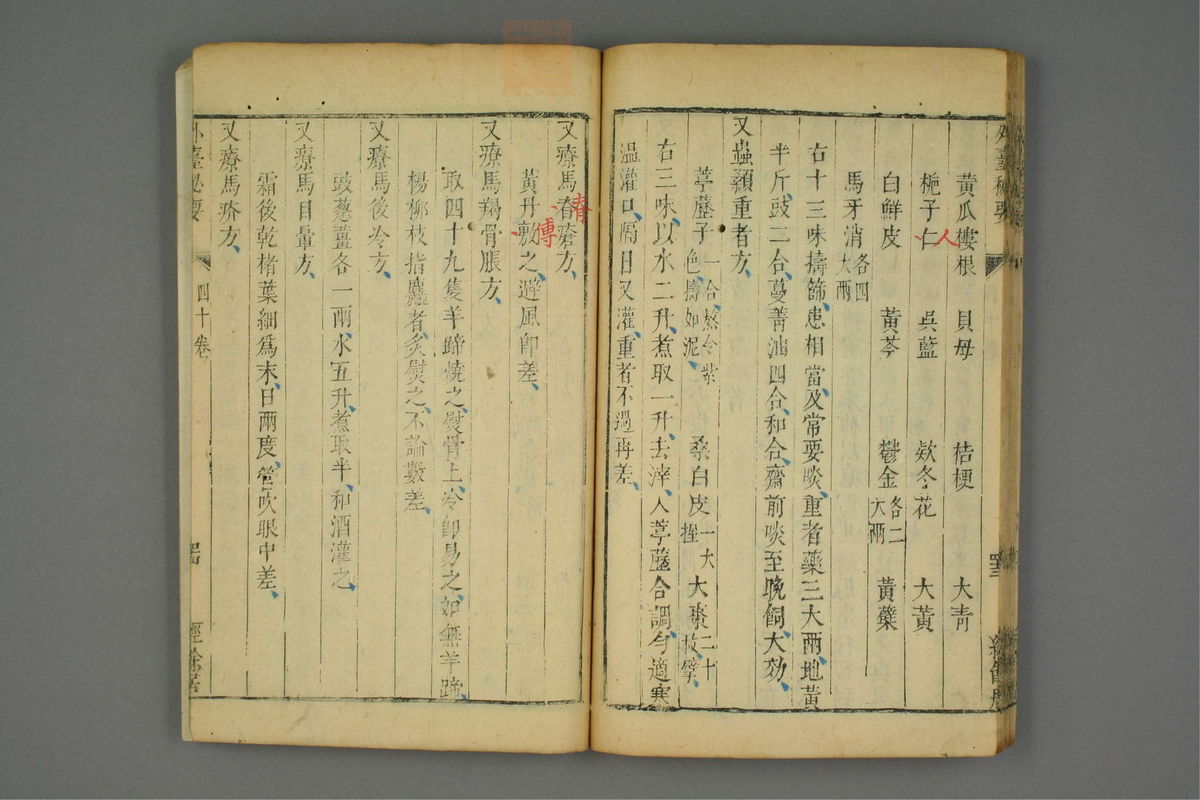 黃瓜樓根　貝母　桔梗　大青
梔子仁　吳藍　欵冬花　大黃
人
白鮮皮　黃芩　鬱金各二大兩　黃蘗
馬牙消各四大兩
右十三味擣篩患相當及常要啖重者藥三大兩地黃
半斤豉二合蔓菁油四合和合齋前啖至晚飼大効
又蟲顙重者方
葶藶子一合熬令紫色擣如泥　桑白皮一大握　大棗二十枚擘
右三味以水二升煮取一升去滓入葶藶合調勻適寒
溫灌口隔日又灌重者不過再差
又療馬脊瘡方
脊
黃丹敷之避風卽差
傅
又療馬羯骨脹方
取四十九隻羊蹄燒之熨骨上冷卽易之如無羊蹄
楊柳枝指麤者炙熨之不論數差
又療馬後冷方
豉葱薑各一兩水五升煮取半和酒灌之
又療馬目暈方
霜後乾楮葉細爲末日兩度管吹眼中差
又療馬疥方
外臺秘要　四十卷